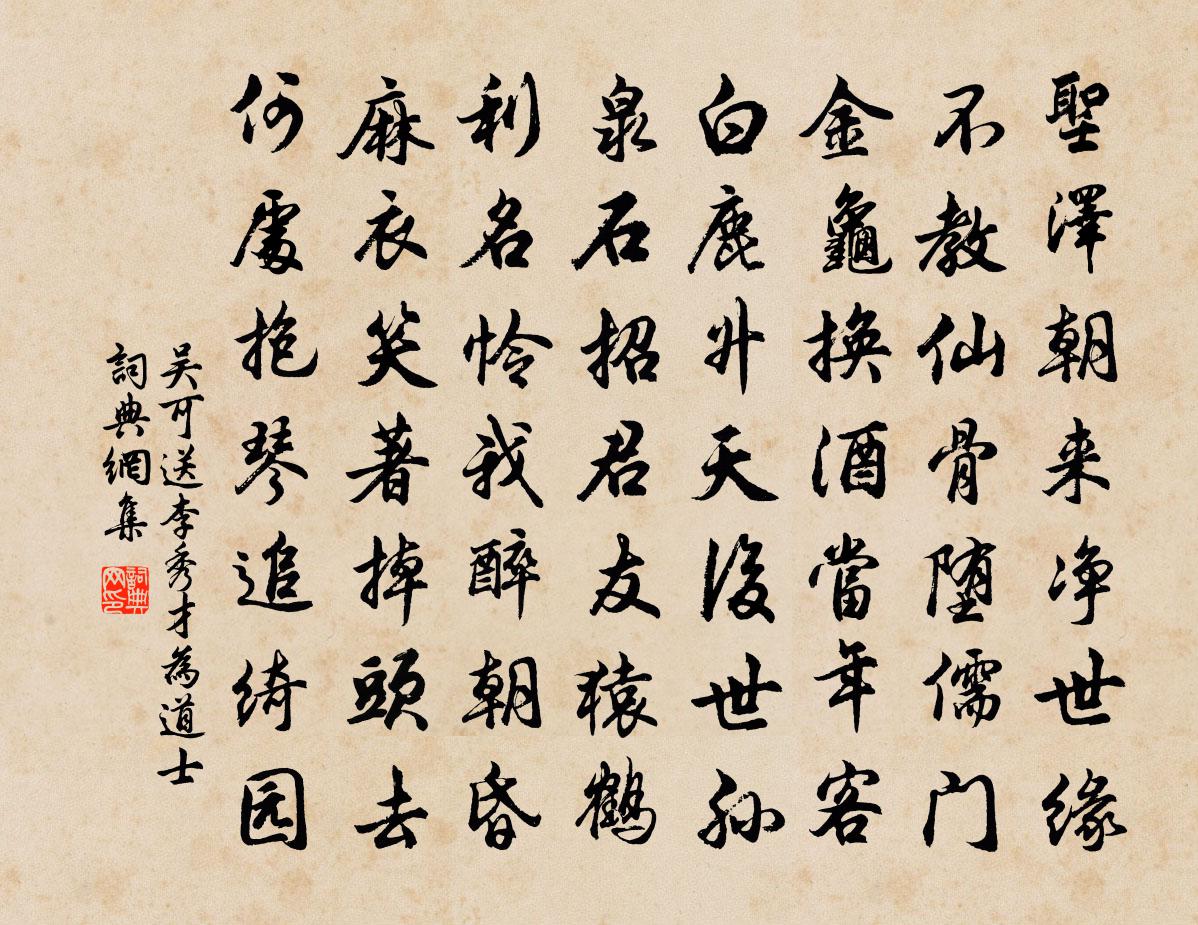 聖澤朝来净世缘
不教仙骨堕儒门
金龜换酒當年客
白鹿升天後世孙
泉石招君友猿鹤
利名怜我醉朝昏
麻衣笑著掉頭去
何處抱琴追绮园
吴可送李秀才為道士
詞典網集
詞典网印